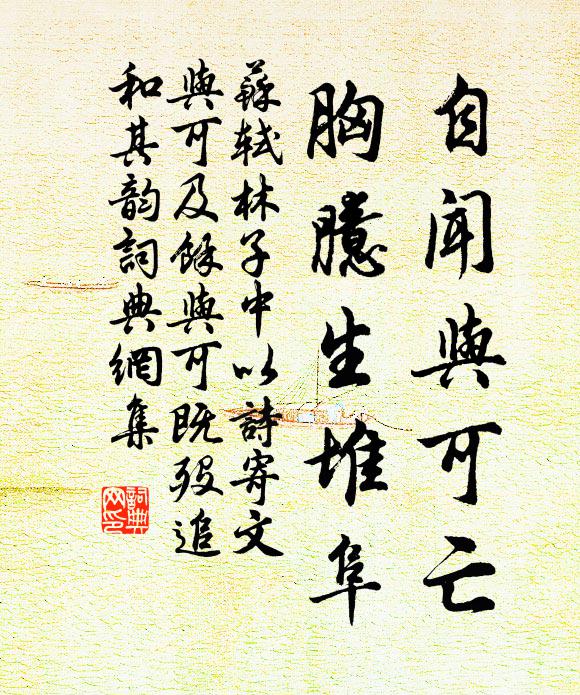 自闻與可亡
胸臆生堆阜
蘇軾林子中以詩寄文
與可及餘與可既歿追
和其韵詞典網集
詞典網印